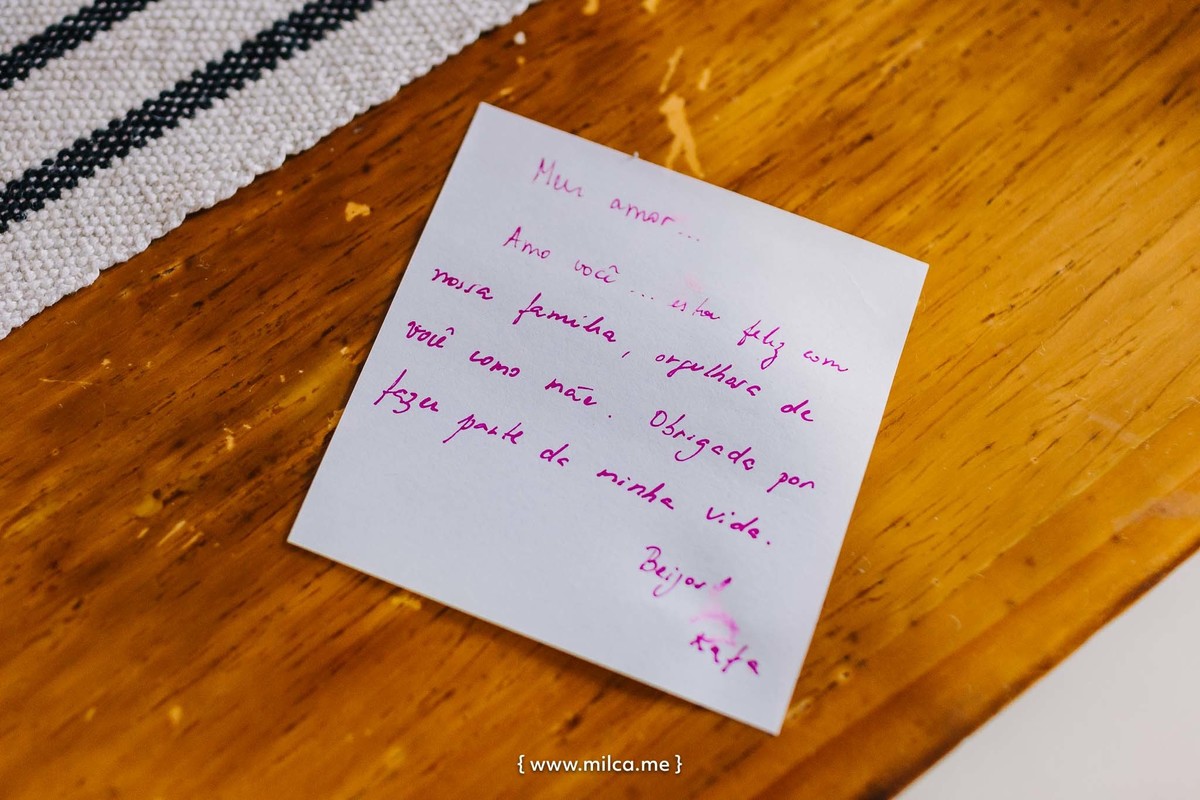 Meu amor...
Amo você... estou feliz com
nossa família, orgulhosa de
você como mãe. Obrigada por
fazer parte da minha vida.
Beijos!
Kafa
{ www.milca.me }